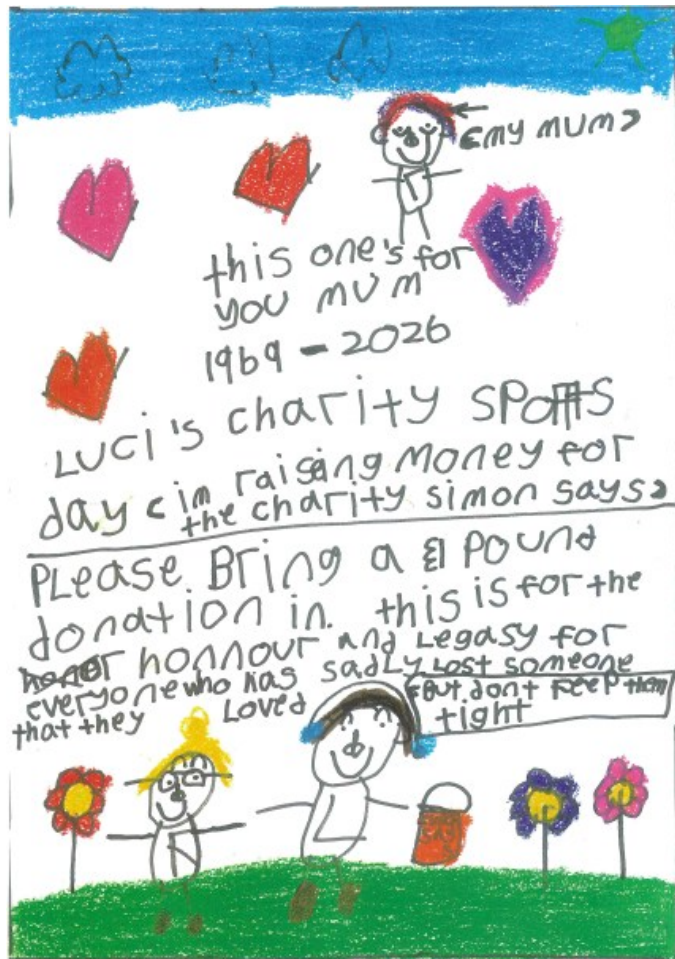 <my mum>
this one's for
you mum
1969 - 2026
Luci's charity sports
day <im raising money for
the charity simon says>
Please Bring a £1 Pound
donation in. this is for the
honnour and Legasy for
everyone who has sadly Lost someone
that they Loved